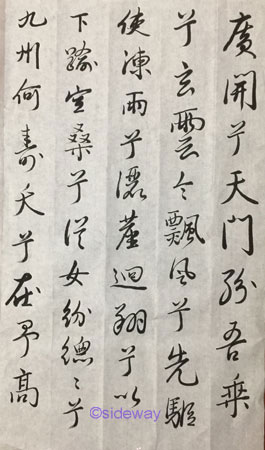 廣開兮天門紛吾乘
兮玄雲令飄風兮先驅
使涷雨兮灑塵迴翔兮以
下踰空桑兮從女紛總〻兮
九州何壽夭兮在予高
©sideway